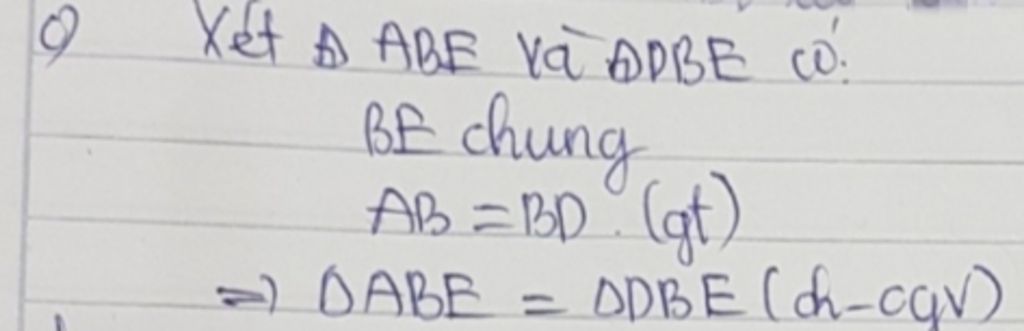 Xét Δ ABE và ΔDBE có:
BE chung
AB = BD. (gt)
=> ΔABE = ΔDBE (ch-cgv)